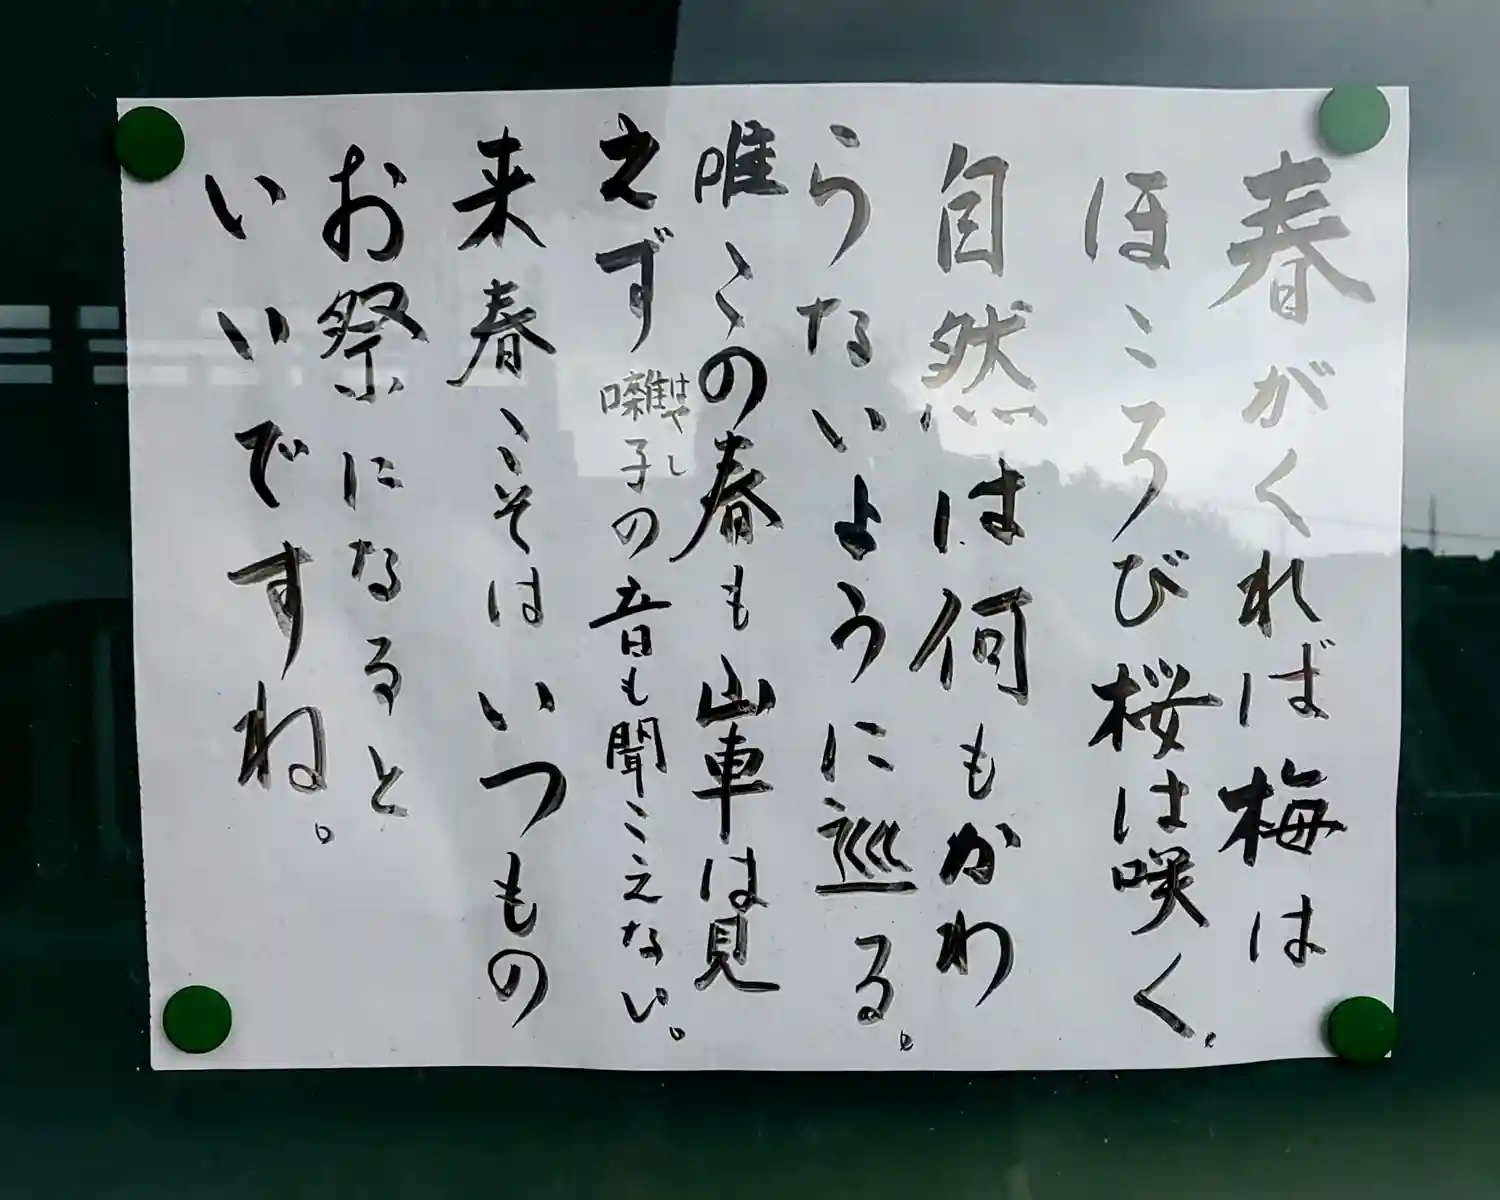 春がくれば梅は
ほころび桜は咲く。
自然は何もかわ
らないように巡る。
唯この春も山車は見
えず囃子の音も聞こえない。
はやし
来春こそはいつもの
お祭になると
いいですね。